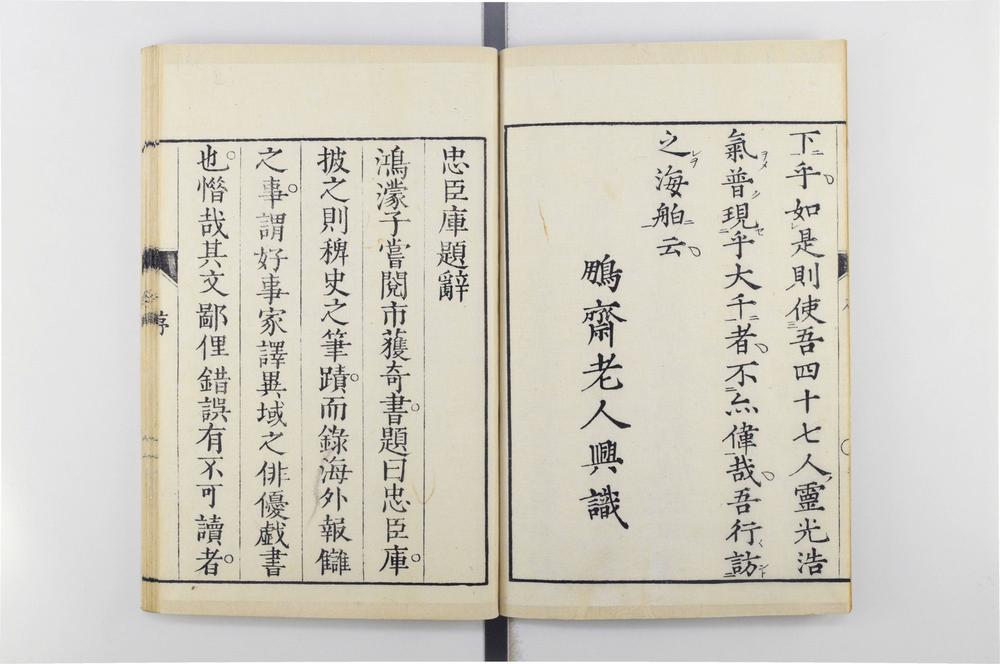 下乎如是則使吾四十七人靈光浩
氣普現乎大千者不亦偉哉吾行訪
之海舶云
鵬齋老人興識
忠臣庫題辭
鴻濛子嘗閱市獲奇書題曰忠臣庫
披之則稗史之筆蹟而錄海外報讎
之事謂好事家譯異域之俳優戲書
也惜哉其文鄙俚錯誤有不可讀者
序